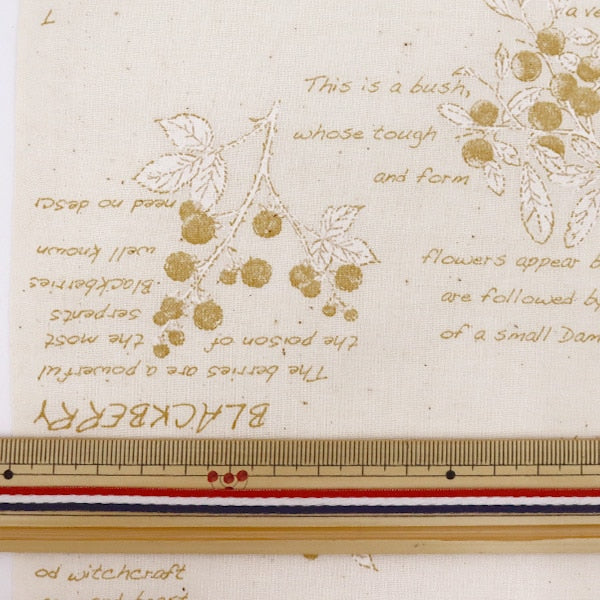 This is a bush,
whose tough
and form
flowers appear
are followed by
of a small Dam
BLACKBERRY
The berries are a powerful
the poison of the most
serpents
Blackberries
well known
need no descr
od witchcraft